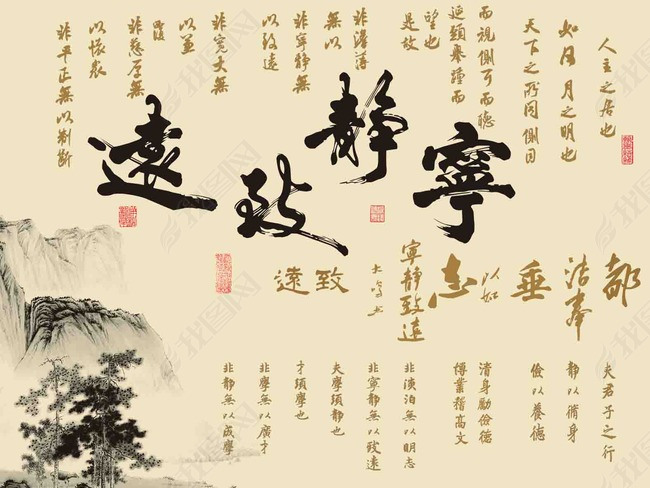 人主之居也
如日月之明也
天下之所同側目
而視側耳而聽
延頸舉踵而
望也
是故
非澹薄
無以
非寧靜無
以致遠
非寬大無
以並
覆
非慈厚無
以懷衆
非平正無以制斷
寧靜致遠
都
浩奉
垂
以如
志
寧靜致遠
致遠
夫君子之行
靜以脩身
儉以養德
清身勵儉德
博業稽高文
非淡泊無以明志
非寧靜無以致遠
夫學須靜也
才須學也
非學無以廣才
非靜無以成學